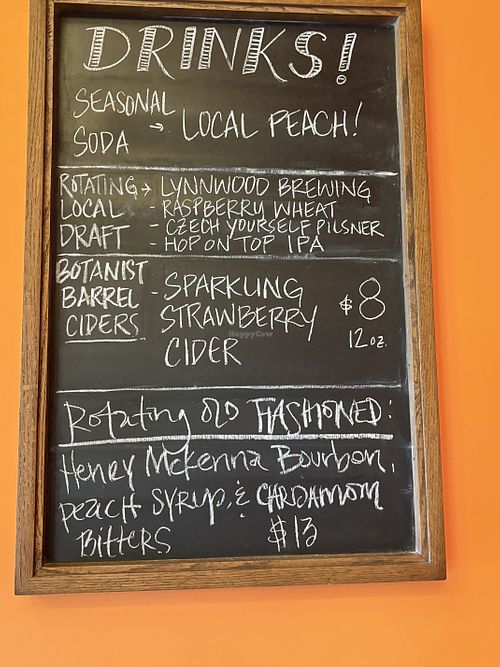 DRINKS!
SEASONAL
SODA → LOCAL PEACH!
ROTATING → LYNNWOOD BREWING
LOCAL - RASPBERRY WHEAT
DRAFT - CZECH YOURSELF PILSNER
- HOP ON TOP IPA
BOTANIST
BARREL
CIDERS
- SPARKLING
STRAWBERRY
CIDER
$8
12oz.
Rotating OLD FASHIONED:
Henry McKenna Bourbon,
PEACH SYRUP, & CARDAMOM
BITTERS $13
HappyCow